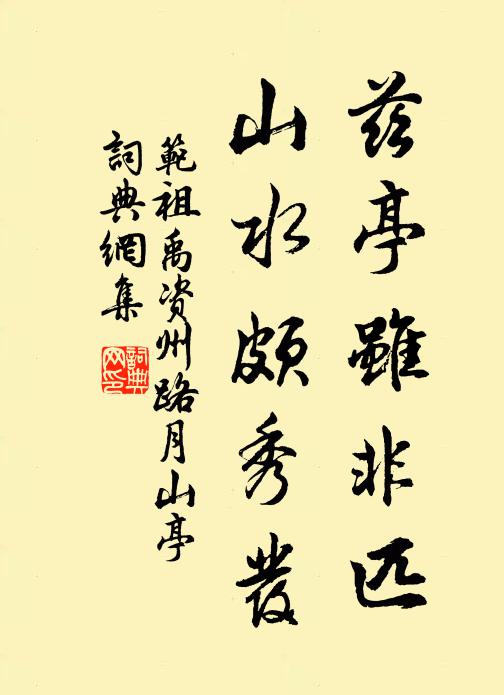 茲亭雖非匹
山水頗秀發
範祖禹資州路月山亭
詞典網集
詞典網印